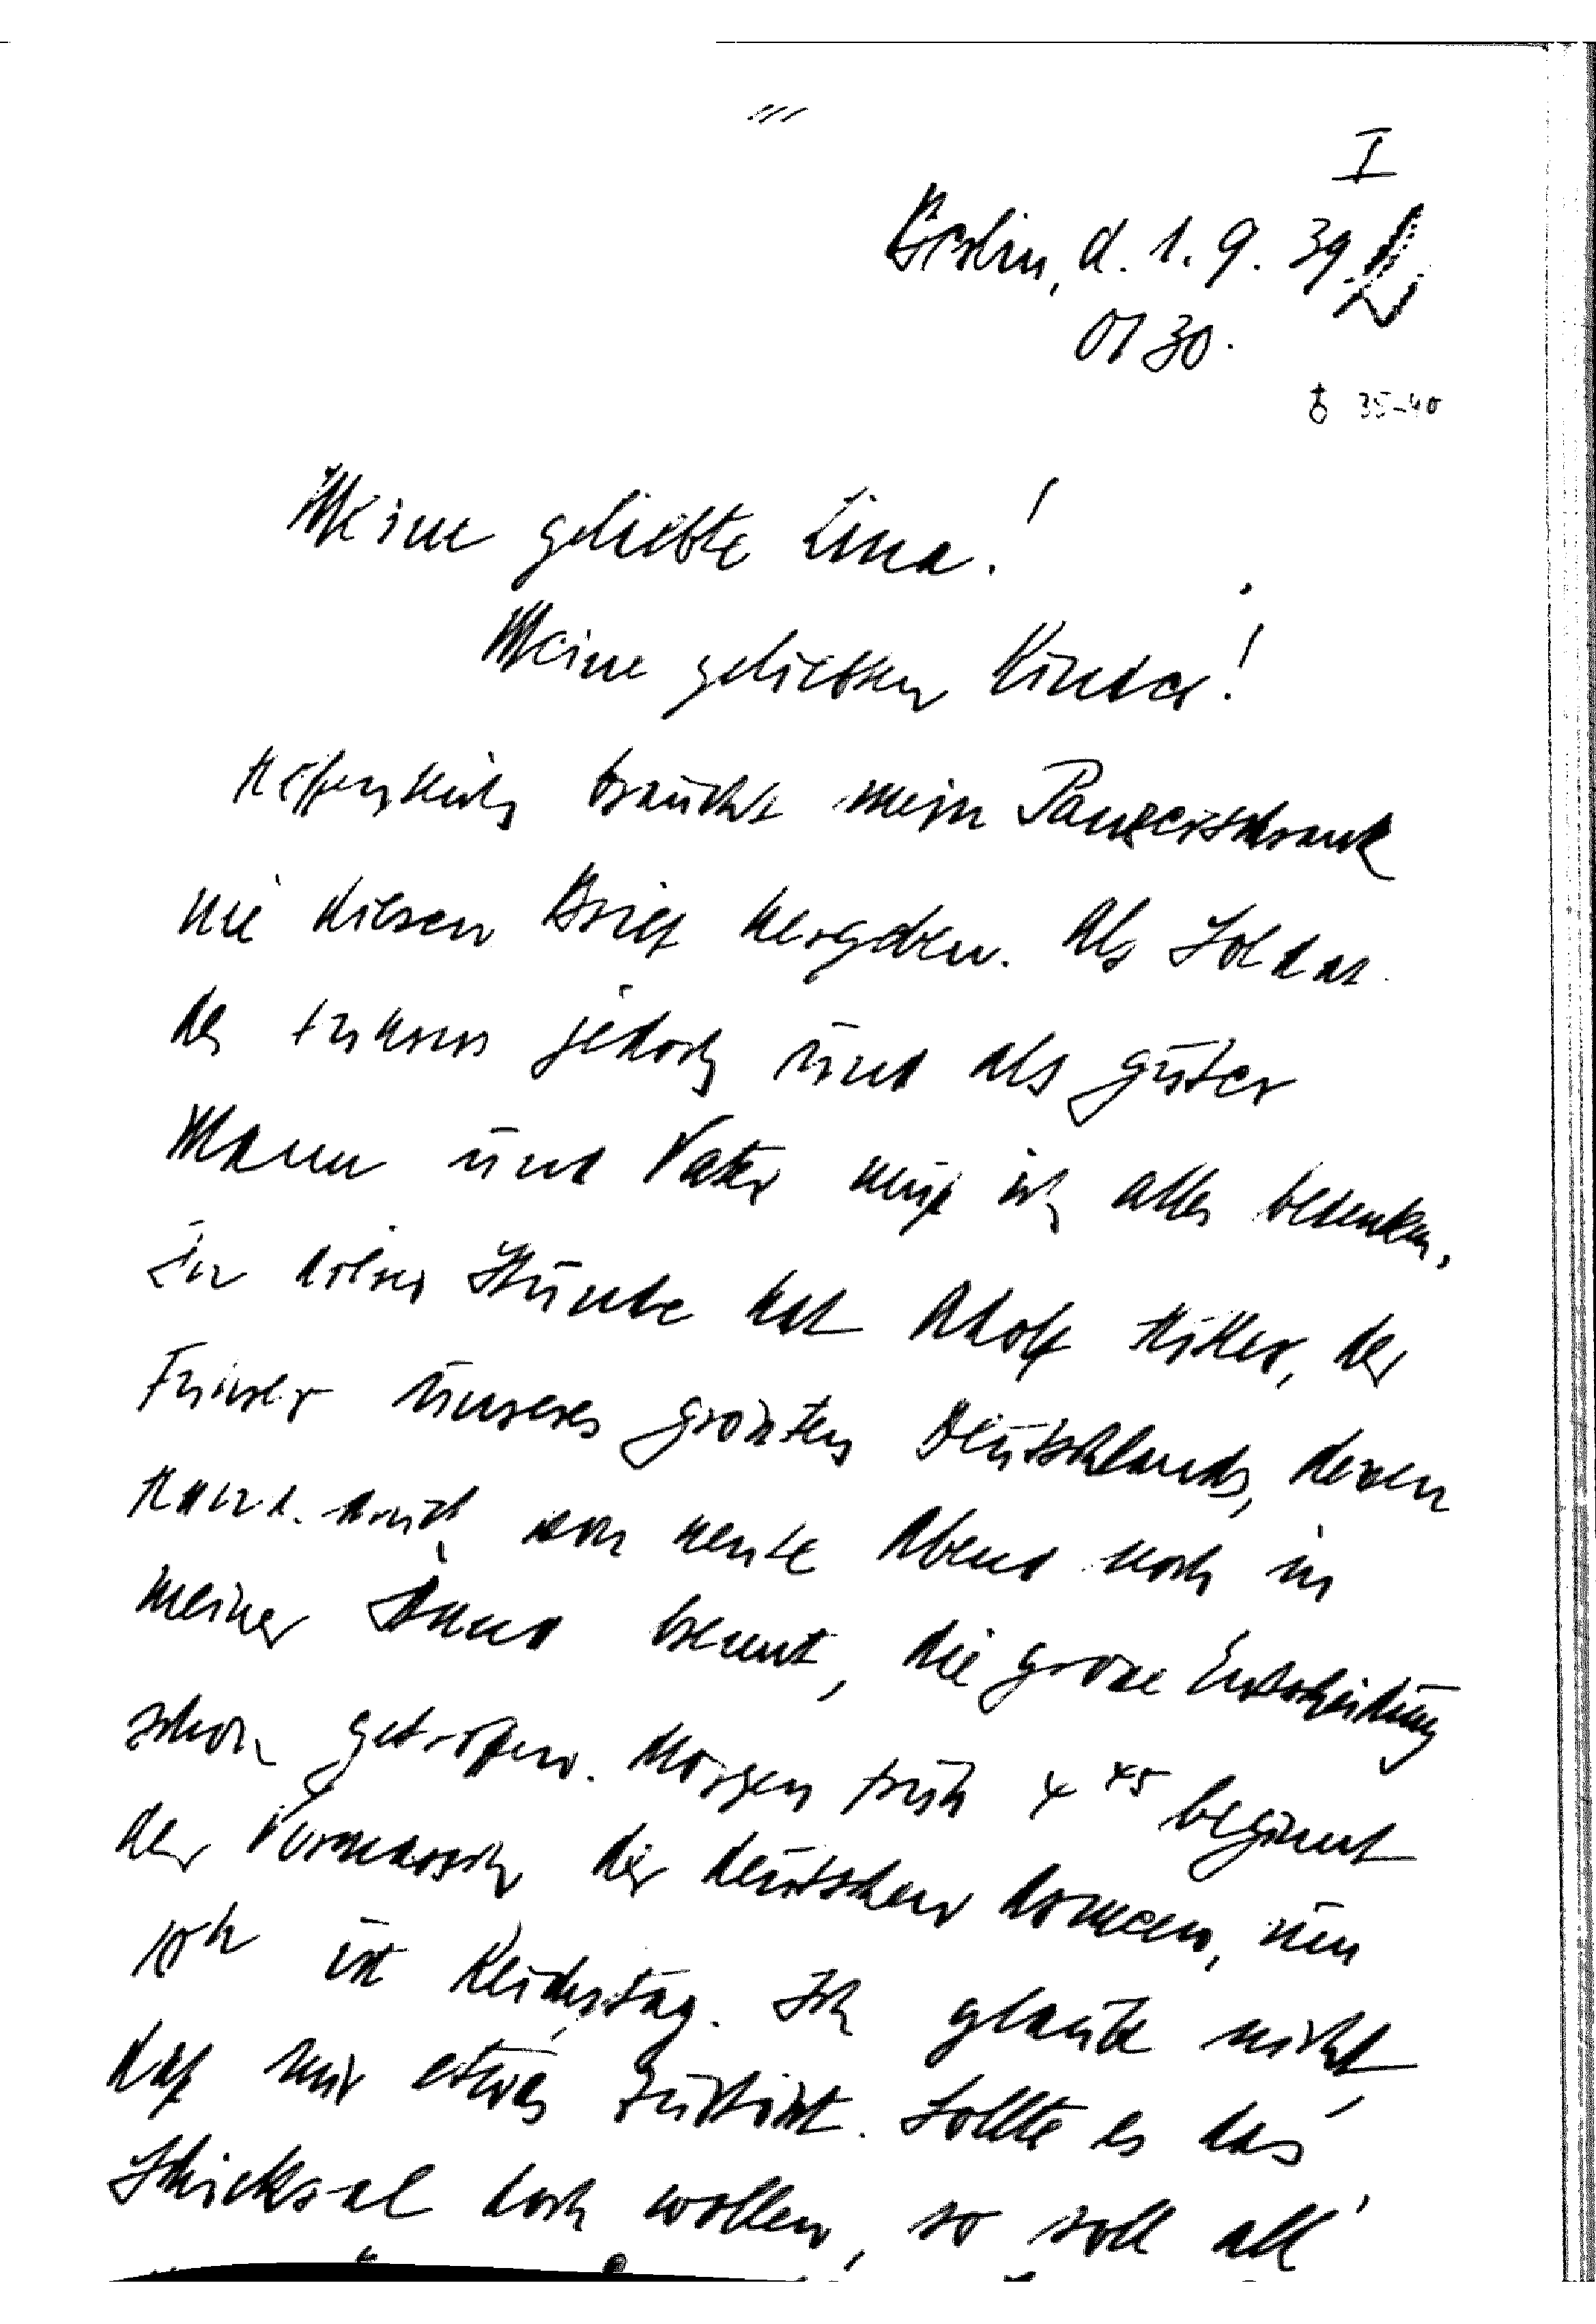 I
Berlin, d. 1. 9. 39.
0130.
35-40
Meine geliebte Lina!
Meine geliebten Kinder!
Hoffentlich braucht mein Panzerschrank
nie diesen Brief hergeben. Als Soldat
des Führers jedoch und als guter
Mann und Vater muß ich alles bedenken.
In dieser Stunde hat Adolf Hitler, der
Führer unseres großen Deutschlands, dessen
Händedruck von heute Abend noch in
meiner Hand brennt, die große Entscheidung
schon getroffen. Morgen früh 4 45 beginnt
der Vormarsch der deutschen Armeen, um
10h ist Reichstag. Ich glaube nicht,
daß mir etwas zustößt. Sollte es das
Schicksal doch wollen, so soll all'